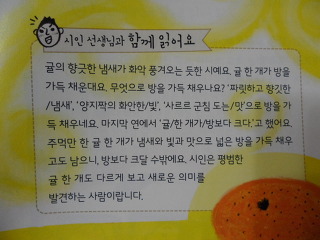 시인 선생님과 함께 읽어요
귤의 향긋한 냄새가 화악 풍겨오는 듯한 시예요. 귤 한 개가 방을
가득 채운대요. 무엇으로 방을 가득 채우나요? '짜릿하고 향긋한
/냄새', '양지짝의 화안한/빛', '사르르 군침 도는/맛'으로 방을 가
득 채우네요. 마지막 연에서 '귤/한 개가/방보다 크다.'고 했어요.
주먹만 한 귤 한 개가 냄새와 빛과 맛으로 넓은 방을 가득 채우
고도 남으니, 방보다 크달 수밖에요. 시인은 평범한
귤 한 개도 다르게 보고 새로운 의미를
발견하는 사람이랍니다.